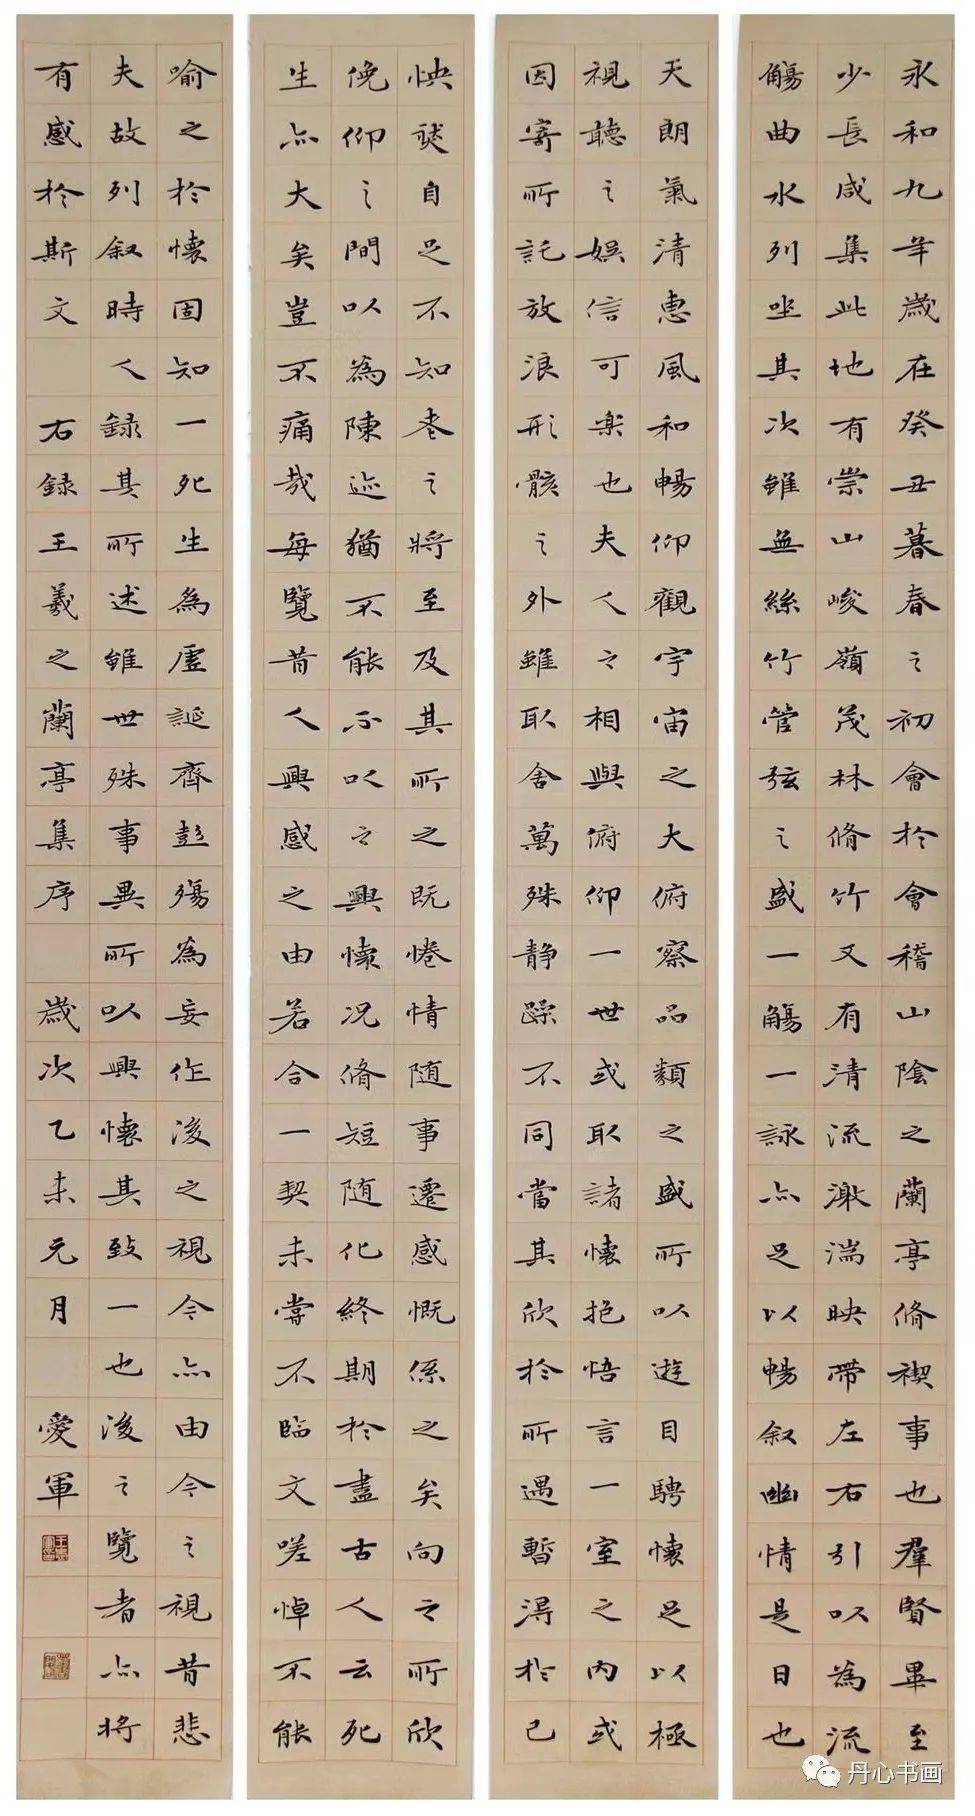 永和九年歲在癸丑暮春之初會於會稽山陰之蘭亭脩禊事也羣賢畢至
少長咸集此地有崇山峻嶺茂林脩竹又有清流激湍映帶左右引以為流
觴曲水列坐其次雖無絲竹管弦之盛一觴一詠亦足以暢叙幽情是日也
天朗氣清惠風和暢仰觀宇宙之大俯察品類之盛所以遊目騁懷足以極
視聽之娛信可樂也夫人之相與俯仰一世或取諸懷抱悟言一室之內或
因寄所託放浪形骸之外雖取舍萬殊静躁不同當其欣於所遇暫得於己
怏然自足不知老之將至及其所之既惓情随事遷感慨係之矣向之所欣
俛仰之間以為陳迹猶不能不以之興懷况脩短随化終期於盡古人云死
生亦大矣豈不痛哉每覽昔人興感之由若合一契未嘗不臨文嗟悼不能
喻之於懷固知一死生為虛誕齊彭殤為妄作後之視今亦由今之視昔悲
夫故列叙時人録其所述雖世殊事異所以興懷其致一也後之覽者亦將
有感於斯文 右録王羲之蘭亭集序 歲次乙未元月 愛軍
丹心书画